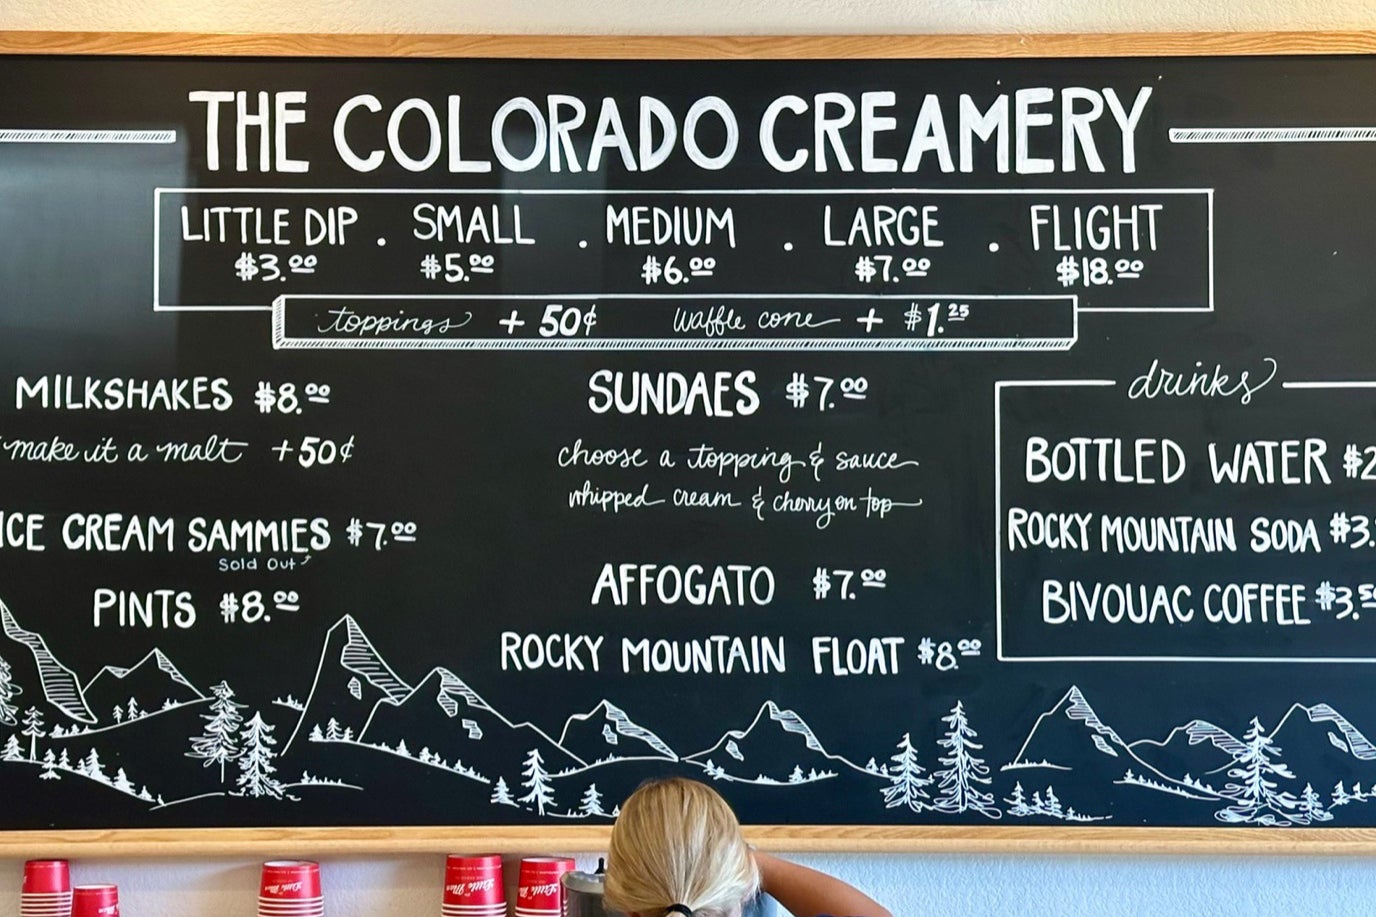 THE COLORADO CREAMERY
LITTLE DIP . SMALL . MEDIUM . LARGE . FLIGHT
$3.00 $5.00 $6.00 $7.00 $18.00
toppings + 50¢ waffle cone + $1.25
MILKSHAKES $8.00
make it a malt +50¢
ICE CREAM SAMMIES $7.00
Sold Out
PINTS $8.00
SUNDAES $7.00
choose a topping & sauce
whipped cream & cherry on top
AFFOGATO $7.00
ROCKY MOUNTAIN FLOAT $8.00
drinks
BOTTLED WATER $2
ROCKY MOUNTAIN SODA $3.
BIVOUAC COFFEE $3.50
Little Man
Little Man
Little Man